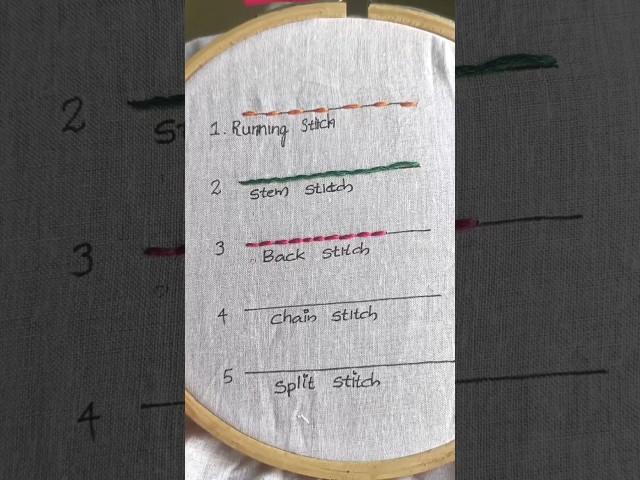 1. Running Stich
2 Stem stitch
3 Back stitch
4 Chain stitch
5 Split stitch